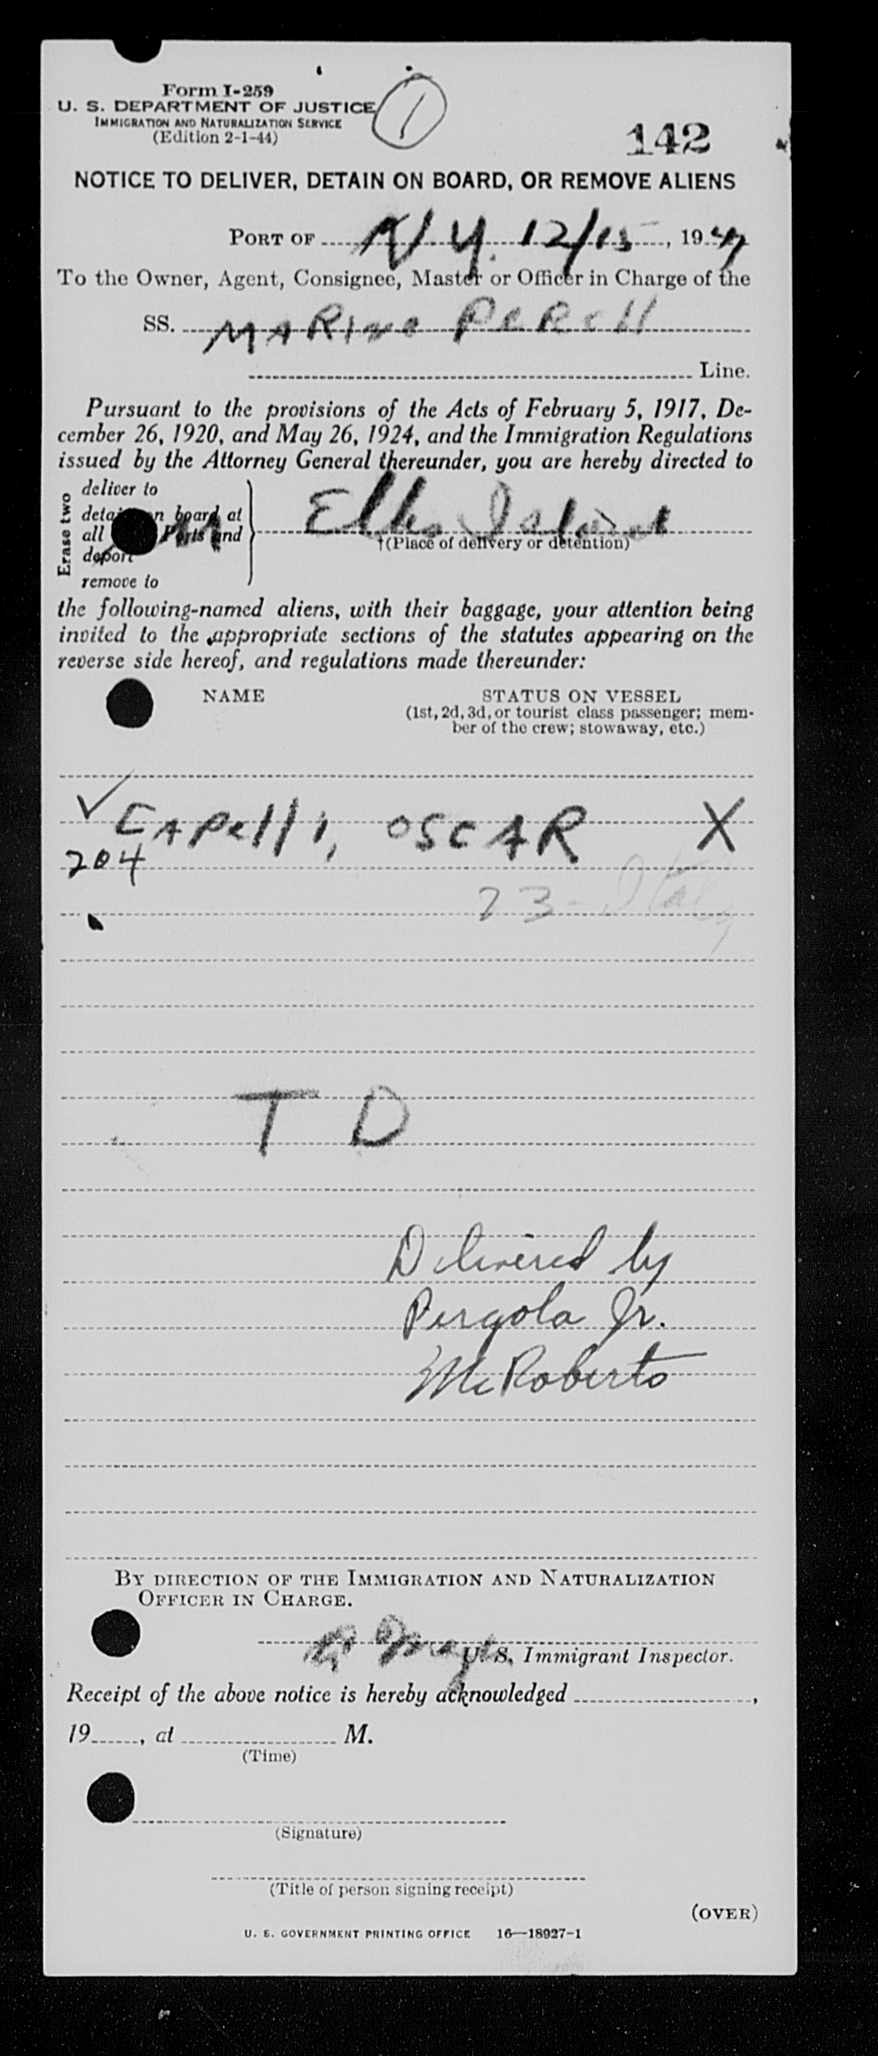 Form I-259
U. S. DEPARTMENT OF JUSTICE
IMMIGRATION AND NATURALIZATION SERVICE
(Edition 2-1-44)
1
142
NOTICE TO DELIVER, DETAIN ON BOARD, OR REMOVE ALIENS
PORT OF N.Y. 12/15, 1947
To the Owner, Agent, Consignee, Master or Officer in Charge of the
SS. MARINE PERCH
Line.
Pursuant to the provisions of the Acts of February 5, 1917, De-
cember 26, 1920, and May 26, 1924, and the Immigration Regulations
issued by the Attorney General thereunder, you are hereby directed to
Erase two
deliver to
detain on board at
all Ports and
deport
remove to
Ellis Island
†(Place of delivery or detention)
the following-named aliens, with their baggage, your attention being
invited to the appropriate sections of the statutes appearing on the
reverse side hereof, and regulations made thereunder:
NAME STATUS ON VESSEL
(1st, 2d, 3d, or tourist class passenger; mem-
ber of the crew; stowaway, etc.)
✓ CAPelli, OSCAR X
204
23 - Italy
T D
Delivered by
Pergola Jr.
McRoberts
BY DIRECTION OF THE IMMIGRATION AND NATURALIZATION
OFFICER IN CHARGE.
U. S. Immigrant Inspector.
Receipt of the above notice is hereby acknowledged ,
19 , at M.
(Time)
(Signature)
(Title of person signing receipt)
(OVER)
U. S. GOVERNMENT PRINTING OFFICE 16—18927-1